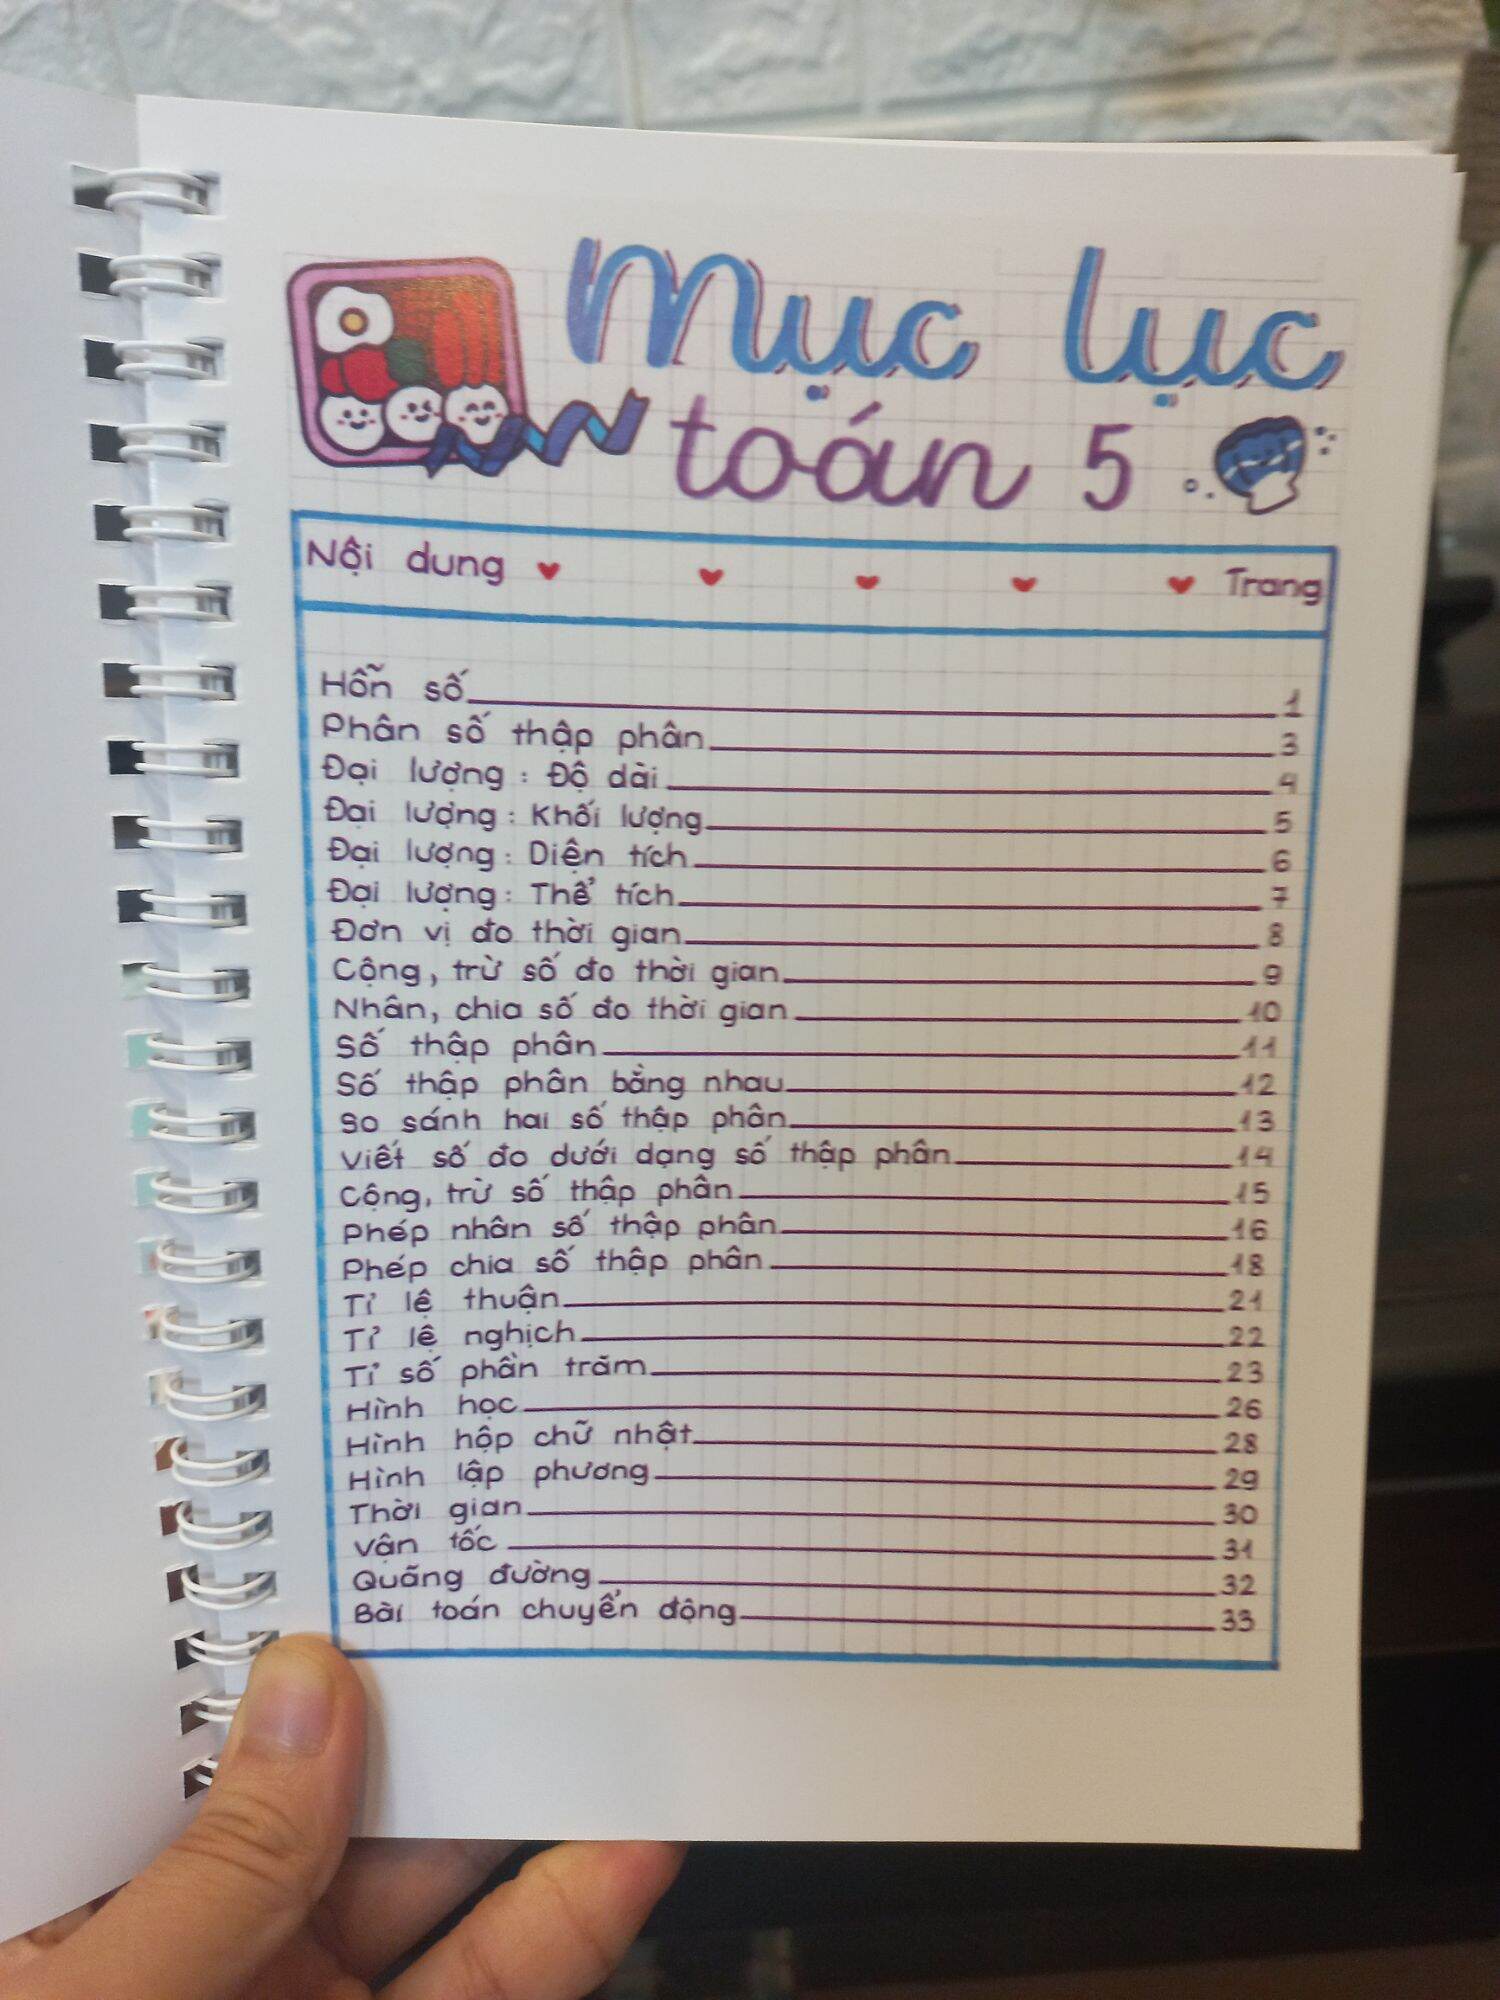 mục lục
toán 5
Nội dung Trang
Hỗn số 1
Phân số thập phân 3
Đại lượng : Độ dài 4
Đại lượng : Khối lượng 5
Đại lượng : Diện tích 6
Đại lượng : Thể tích 7
Đơn vị đo thời gian 8
Cộng, trừ số đo thời gian 9
Nhân, chia số đo thời gian 10
Số thập phân 11
Số thập phân bằng nhau 12
So sánh hai số thập phân 13
Viết số đo dưới dạng số thập phân 14
Cộng, trừ số thập phân 15
Phép nhân số thập phân 16
Phép chia số thập phân 18
Tỉ lệ thuận 21
Tỉ lệ nghịch 22
Tỉ số phần trăm 23
Hình học 26
Hình hộp chữ nhật 28
Hình lập phương 29
Thời gian 30
Vận tốc 31
Quãng đường 32
Bài toán chuyển động 33